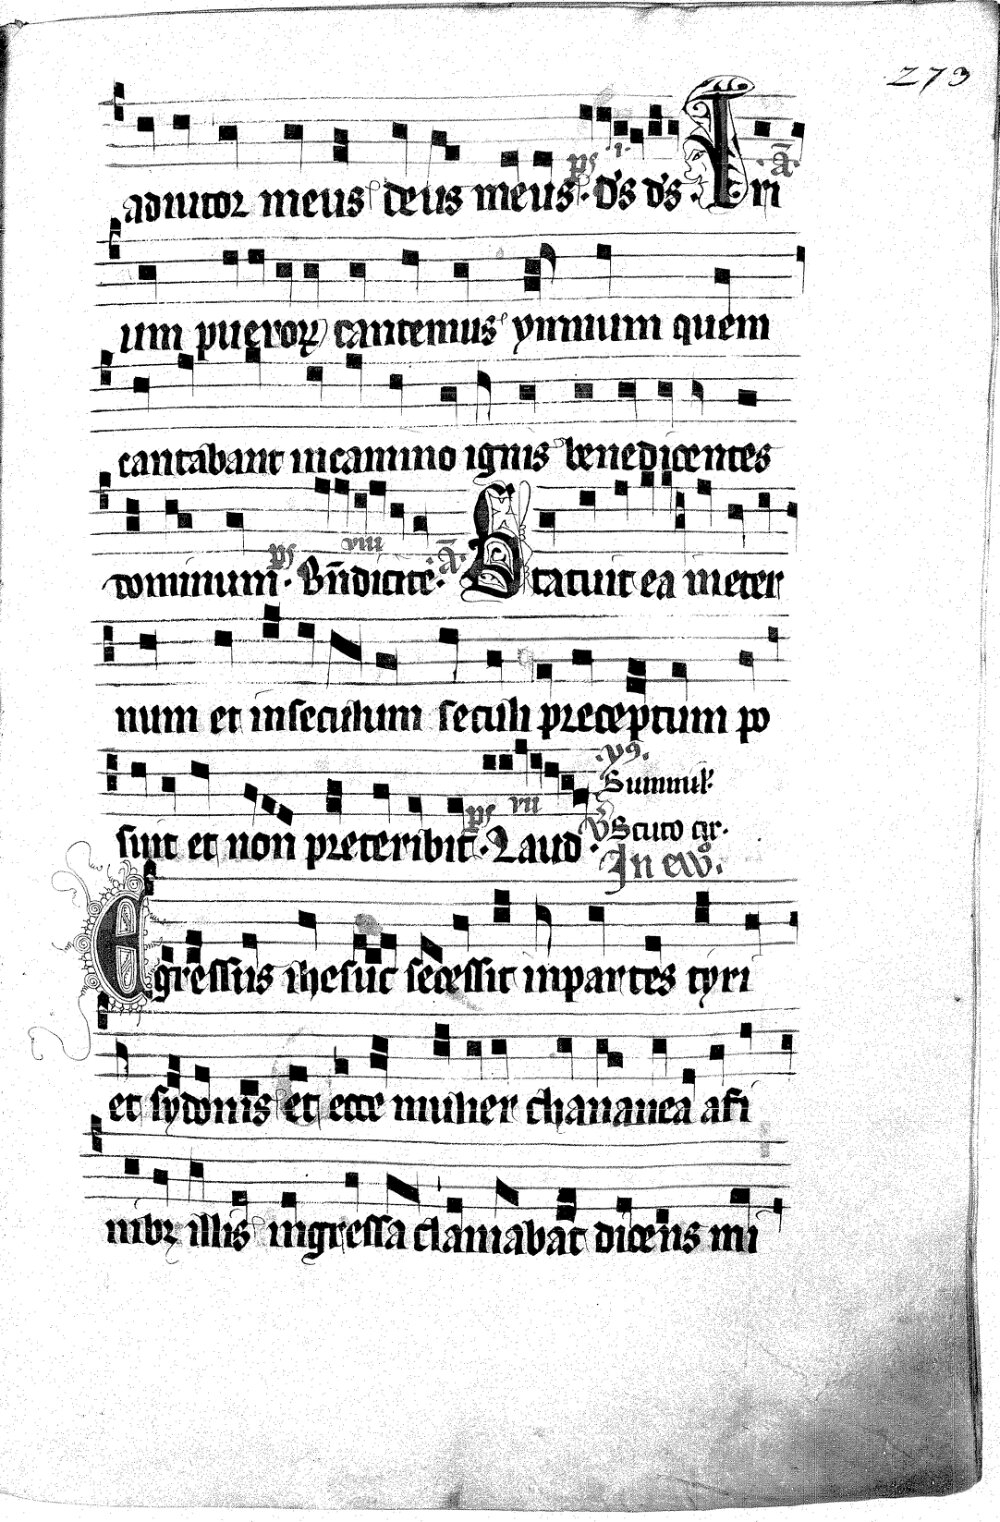 273
adiutor meus deus meus. ps d's d's. i. Tri a
um pueroꝝ cantemus ymnum quem
cantabant in camino ignis benedicentes
dominum. ps Bn̄dicite. viii ā. Statuit ea in eter
num et in seculum seculi preceptum po
suit et non preteribit. ps Laud. vii
v9.
Summul'
Scuto cir.
In ew̄.
Egressus ihesus secessit in partes tyri
et sydonis et ecce mulier chananea a fi
nibꝰ illis ingressa clamabat dicens mi